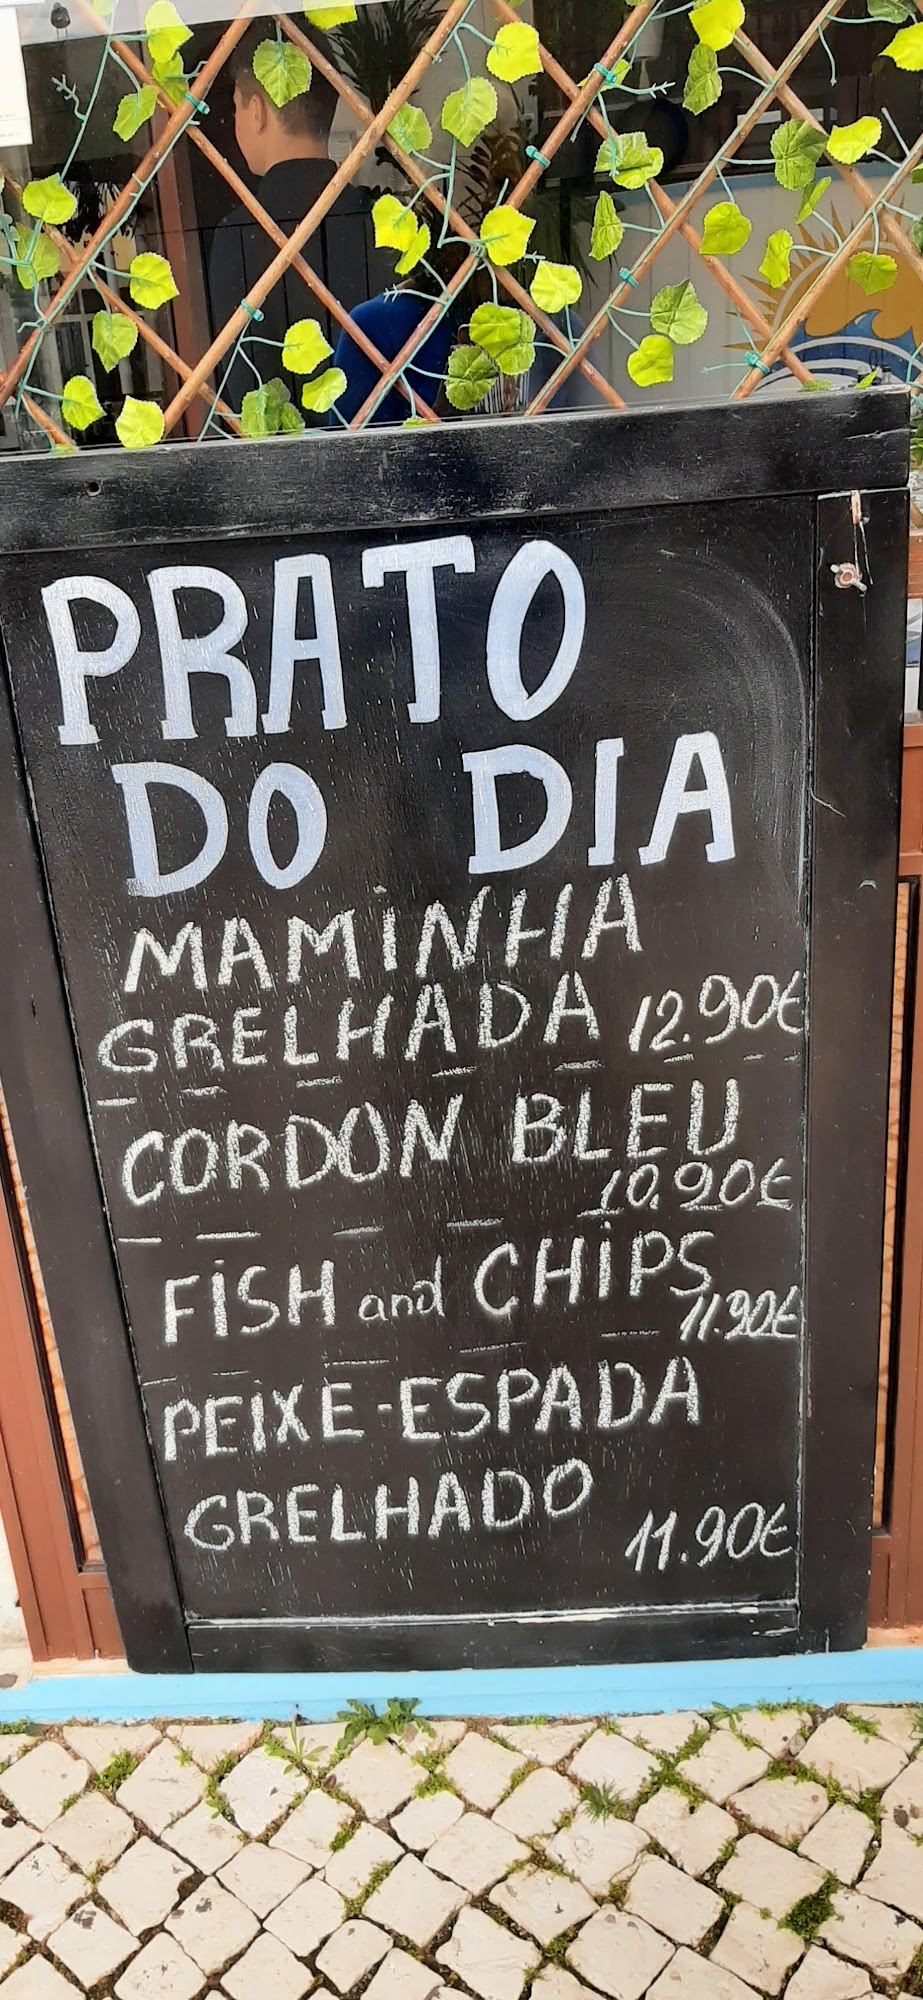 PRATO
DO DIA
MAMINHA
GRELHADA 12.90€
CORDON BLEU
10.90€
FISH and CHIPS
11.90€
PEIXE-ESPADA
GRELHADO
11.90€